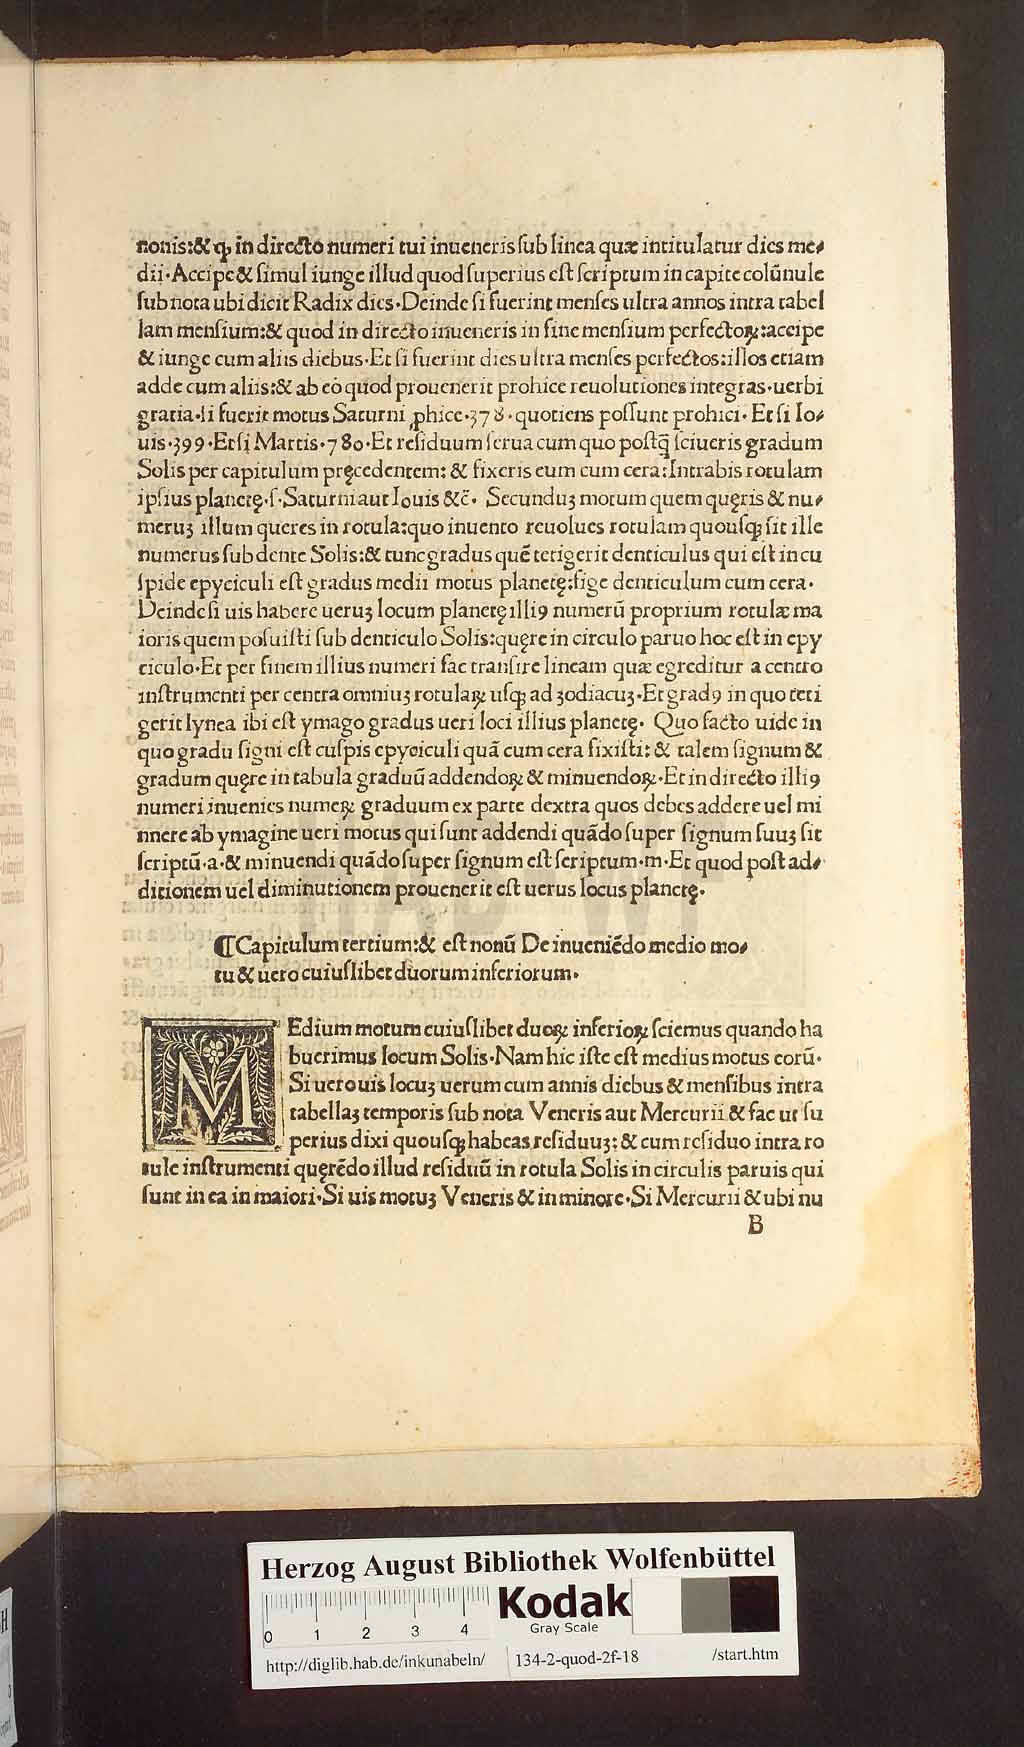 nonis:& ꝙ in directo numeri tui inueneris sub linea quæ intitulatur dies me⸗
dii·Accipe & simul iunge illud quod superius est scriptum in capite colūnule
sub nota ubi dicit Radix dies·Deinde si fuerint menses ultra annos intra tabel
lam mensium:& quod in directo inueneris in fine mensium perfectoꝝ:accipe
& iunge cum aliis diebus·Et si fuerint dies ultra menses perfectos:illos etiam
adde cum aliis:& ab eo quod prouenerit prohice reuolutiones integras·uerbi
gratia·si fuerit motus Saturni ꝓhice·378·quotiens possunt prohici·Et si Io⸗
uis·399·Et si Martis·780·Et residuum serua cum quo postꝗ̄ sciueris gradum
Solis per capitulum pręcedentem: & fixeris eum cum cera:Intrabis rotulam
ipsius planetę·s·Saturni aut Iouis &c̄· Secunduꝫ motum quem quęris & nu⸗
meruꝫ illum queres in rotula:quo inuento reuolues rotulam quousꝙ sit ille
numerus sub dente Solis:& tunc gradus quē tetigerit denticulus qui est in cu
spide epyciculi est gradus medii motus planetę:fige denticulum cum cera·
Deinde si uis habere ueruꝫ locum planetę illiꝯ numerū proprium rotulæ ma
ioris quem posuisti sub denticulo Solis:quęre in circulo paruo hoc est in epy
ciculo·Et per finem illius numeri fac transire lineam quæ egreditur a centro
instrumenti per centra omniuꝫ rotulaꝝ usꝙ ad ꝫodiacuꝫ·Et gradꝯ in quo teti
gerit lynea ibi est ymago gradus ueri loci illius planetę· Quo facto uide in
quo gradu signi est cuspis epyciculi quā cum cera fixisti: & talem signum &
gradum quęre in tabula graduū addendoꝝ & minuendoꝝ·Et in directo illiꝯ
numeri inuenies numeꝝ graduum ex parte dextra quos debes addere uel mi
nnere ab ymagine ueri motus qui sunt addendi quādo super signum suuꝫ sit
scriptū·a·& minuendi quādo super signum est scriptum·m·Et quod post ad⸗
ditionem uel diminutionem prouenerit est uerus locus planetę·
¶Capitulum tertium:& est nonū De inueniēdo medio mo⸗
tu & uero cuiuslibet duorum inferiorum·
MEdium motum cuiuslibet duoꝝ inferioꝝ sciemus quando ha
buerimus locum Solis·Nam hic iste est medius motus eorū·
Si uero uis locuꝫ uerum cum annis diebus & mensibus intra
tabellaꝫ temporis sub nota Veneris aut Mercurii & fac ut su
perius dixi quousꝙ habeas residuuꝫ: & cum residuo intra ro
tule instrumenti quęrēdo illud residuū in rotula Solis in circulis paruis qui
sunt in ea in maiori·Si uis motuꝫ Veneris & in minore·Si Mercurii & ubi nu
B
HAB WF
Herzog August Bibliothek Wolfenbüttel
Kodak
Gray Scale
0 1 2 3 4
http://diglib.hab.de/inkunabeln/ 134-2-quod-2f-18 /start.htm